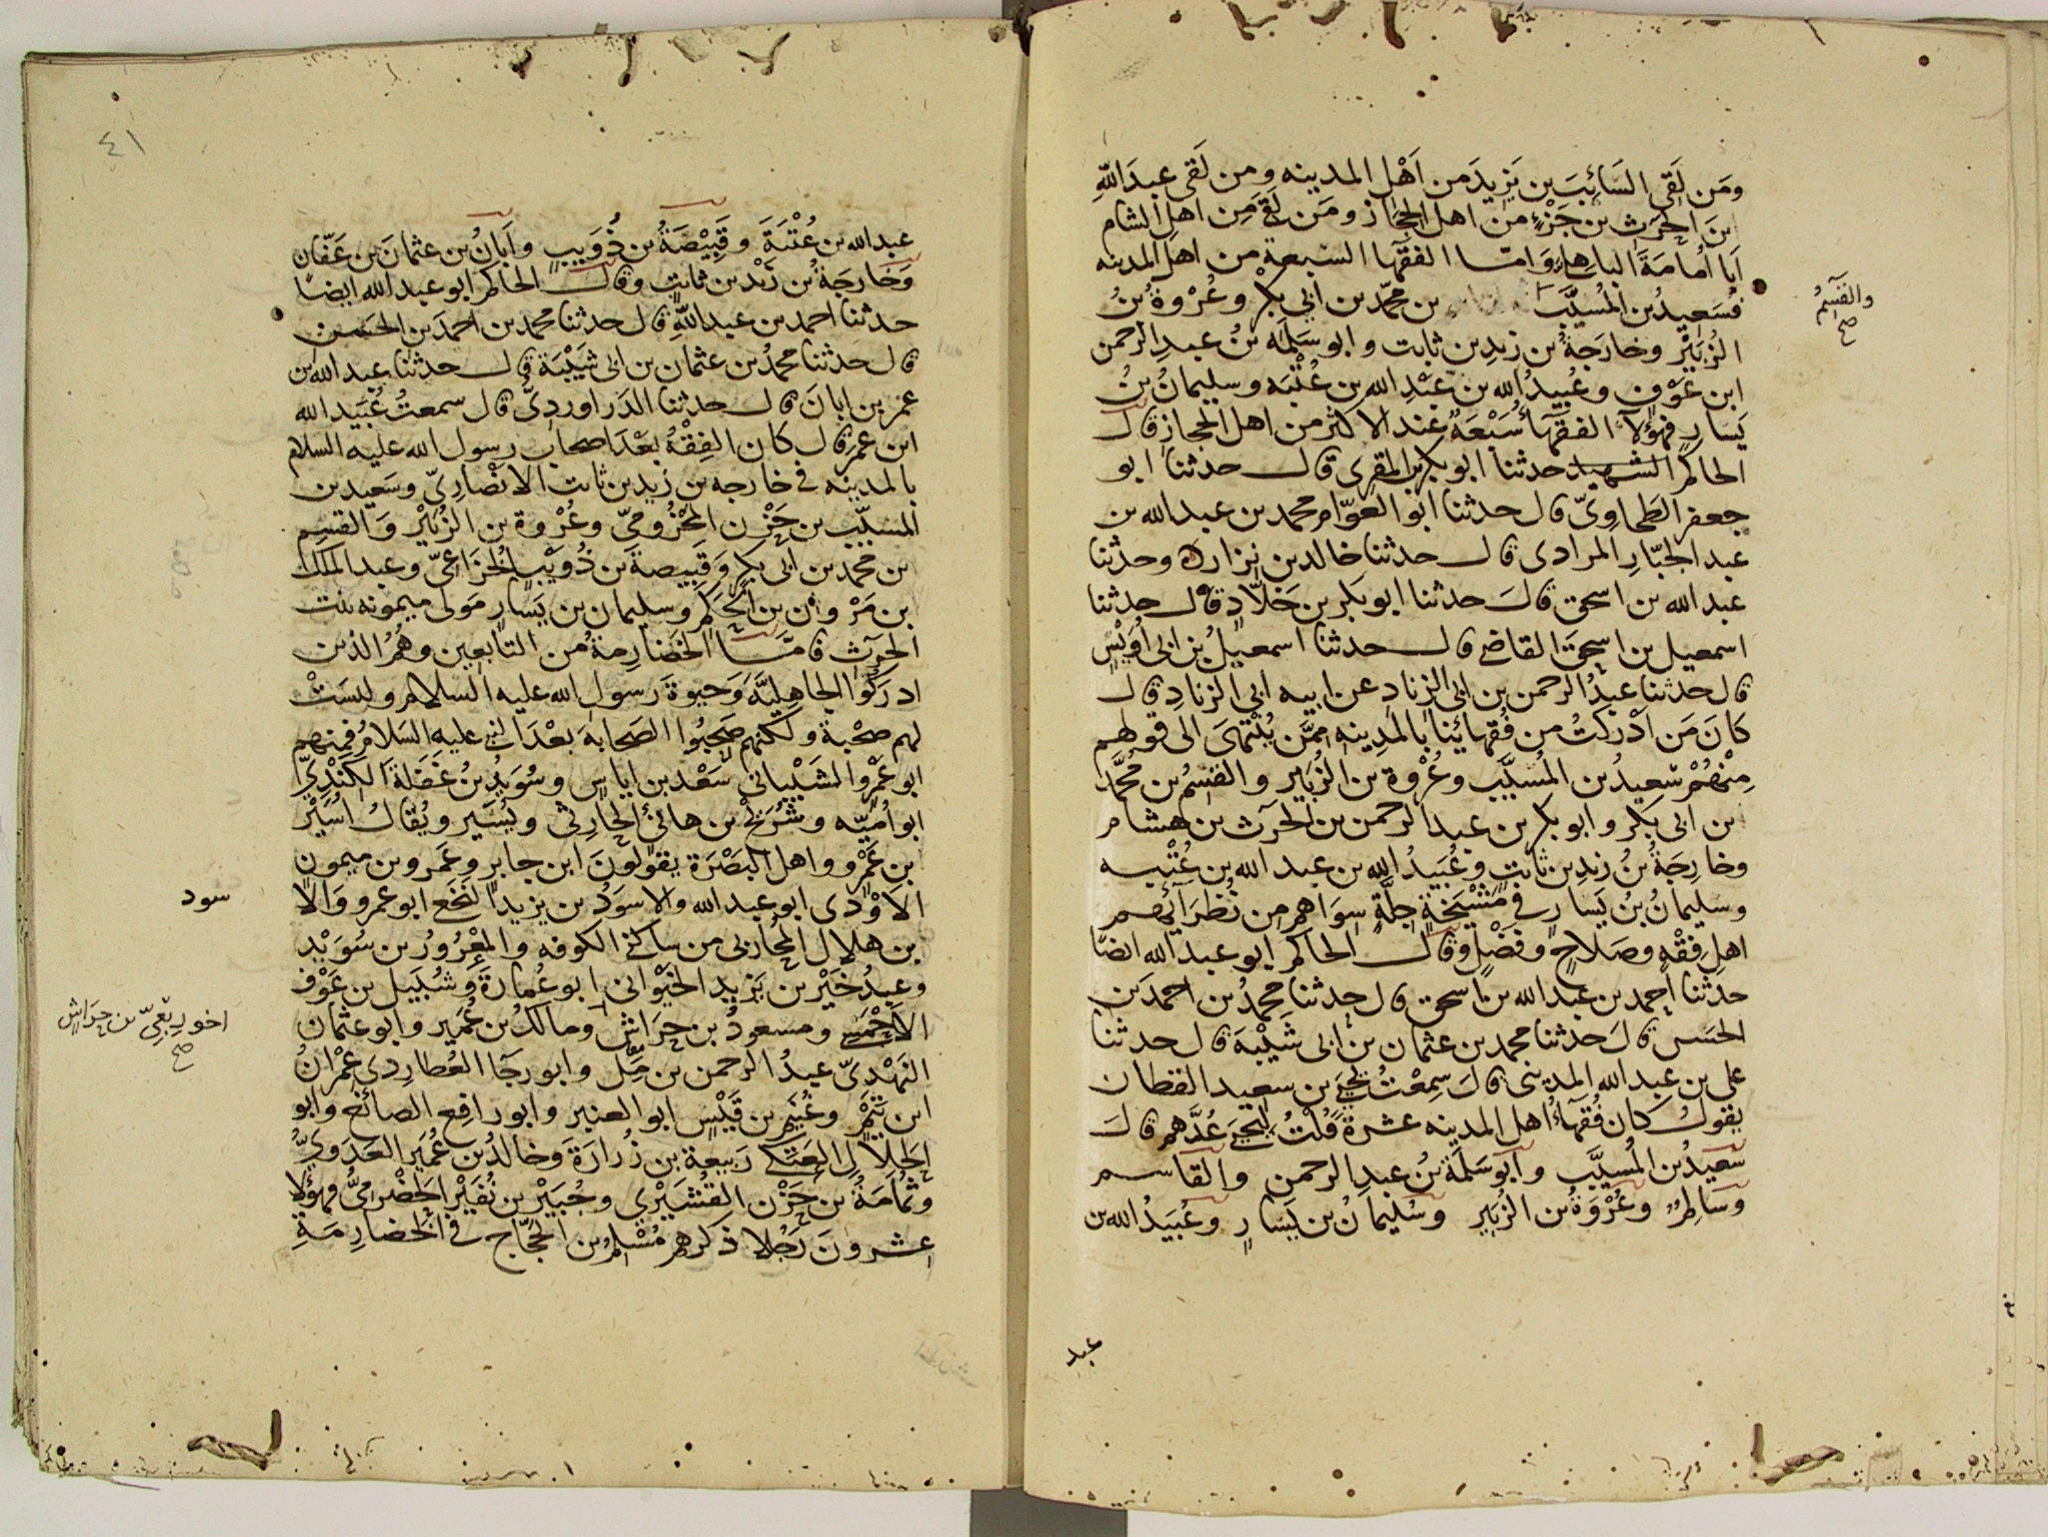 ومَن لَقى السَائِبَ بن يَزيدَ من اَهْل المدينه ومن لَقى عبدَ اللهِ
بنَ الحرث بن جَزْءٍ من اهل الحجاز ومَن لقى مِن اهل الشام
اَبا اُمامَةَ الباهلى وَامّا الفقهآ السّبعة من اهل المدينه
فسَعِيدُ بن المُسيَّب بن محمّد بن ابى بكر وعُرْوة بنُ
والقسِمُ صح
الزُبَيْر وخارجَةُ بن زيدِ بن ثابت وابو سَلمَه بنُ عبدِ الرحمن
ابن عَوْفٍ وعُبيدُ الله بن عَبْدِ الله بن عُتْبَه وسليمانُ بنُ
يَسَارٍ فهؤلآء الفقهآءُ سَبْعَةٌ عِند الاكثر من اهل الحجازِ قال
الحاكم الشهيد حدثنا ابو بكر بن المقرى قال حدثنا ابو
جعفر الطَحاوِىّ قال حدثنا ابو العوّام محمد بن عبد الله بن
عبد الجبّارِ المرادى قال حدثنا خالد بن نزار ه وحدثنا
عبد الله بن اسحق قالَ حدثنا ابو بكر بن خَلّادٍ قال حدثنا
اسمعيل بن اسحقَ القاضى قال حدثنا اسمعيلُ بن ابى اُوَيْسٍ
قال حدثنا عبدُ الرحمن بن ابى الزِنادِ عن ابيه ابى الزنادِ قال
كانَ مَن اَدْركتُ من فُقهائِنا بالمدينه مِمَّن يُنْتَهى الى قولهم
مِنْهُمْ سَعِيدُ بن المُسَيَّب وعُرْوة بن الزُبَير والقسِمُ بن مُحمَّد
بن ابى بكر وابو بكر بن عبد الرحمن بن الحرث بن هشام
وخارِجَةُ بنُ زيدِ بن ثابتٍ وعُبَيدُ الله بن عبد الله بن عُتْبه
وسليمانُ بنُ يَسارٍ فى مَشْيَخةٍ جِلَّةٍ سِوَاهم مِن نُظَرآئهم
اهلِ فِقْهٍ وصَلاحٍ وفَضْلٍ وقال الحاكم ابو عبد الله ايضًا
حدّثنا احمد بن عبد الله بن اسحق قال حدثنا محمدُ بن احمدَ بن
الحسَن قالَ حدثنا محمد بن عثمان بن ابى شَيْبَة قال حدثنا
على بن عبد الله المدينى قالَ سمِعْتُ يحيَى بن سعيد القطان
يقولُ كان فقهآءُ اهل المدينه عشرةً قُلتُ ليحيَى عُدَّهم قالَ
سَعِيدُ بن المُسَيَّب وابو سَلَمَة بن عبد الرحمن والقاسم
وسَالِمٌ وعُرْوَةُ بن الزُبَير وسُليمَانُ بن يَسَارٍ وعُبَيدُ الله بن
عبد
٤١
عبد الله بن عُتْبَةَ وقَبِيْصَةُ بن ذُوَيبٍ واَبَانُ بن عثمانَ بن عَفّان
وَخارجَةُ بن زَيْد بن ثابتٍ وقال الحاكم ابو عبد الله ايضًا
حدثنا احمد بن عبد اللهِ قال حدثنا محمد بن احمدَ بن الحسن
قال حدثنا محمدُ بن عثمان بن ابى شَيْبَة قال حدثنا عبد الله بن
عمر بن ابانَ قال حدثنا الدَراوردِىُّ قال سمعتُ عُبَيد الله
ابن عمر قال كان الفِقْهُ بَعْدَ اصحابِ رسول الله عليه السلام
بالمدينه فى خارجه بن زيد بن ثابت الانْصَارِىّ وسَعيد بن
المسيّب بن حَزْن المخْزُومىّ وعُرْوة بن الزُبَيْر وَالقسِم
بن محمد بن ابى بكرٍ وَقَبِيصةَ بن ذُوَيْب الخُزَاعىّ وعبد الملك
بن مَرْوان بن الحَكم وسليمان بن يَسَارٍ مَولى ميمونه بنت
الحرث فامّا الخَضَارِمة من التّابعِين وهُمُ الذين
ادرَكُوا الجاهِلِيَّة وَحيوةَ رَسول الله عليه السلام وليسَتْ
لهم صُحْبة ولكنهم صَحِبُوا الصَحابةَ بَعْدَ النبى عليه السَلامُ فمنهم
ابو عَمْرٍو الشَيْبانى سَعْد بن اياس وسُوَيدُ بنُ غَفَلةَ الكِنْدِىُّ
ابو اُميّه وشُرَيحُ بن هانئ الحارثى ويُسَير ويُقالُ اُسَيْر
بن عَمْرو واهل البَصْرَة يقولونَ ابن جابر وعَمرو بن ميمون
الاَوْدى ابو عبد الله والاسوَدُ بن يزيد النخَعى ابو عمرو وَالا
سود
بن هلال المحُاربى من ساكنى الكوفه والمَعْرُورُ بن سُوَيْد
وعبدُ خَيْر بن يَزيد الخَيْوانى ابو عُمارَةَ وشُبَيل بن عَوْف
الاحْمسى ومسعودُ بن حِرَاشٍ ومالك بن عُمَير وابو عثمان
اخو رِبْعىّ بن حِرَاشٍ صح
النَهْدىّ عبدُ الرحمن بن مِلّ وابو رجَا العُطارِدى عِمْرانُ
ابن تَيْمٍ وغُنَيم بن قَيْسٍ ابو العنبر وابو رافِع الصائغ وابو
الحَلالِ العَتَكى رَبيعة بن زُرارَةَ وخالدُ بن عُمَير العَدَوىُّ
وثُمامَةُ بن حَزْن القُشَيْرى وجُبَيْر بن نُفَيْر الحَضْرمىُّ فهؤلا
عشرونَ رَجُلا ذكَرهم مُسْلِم بن الحجّاج فى الخضارِمَةِ